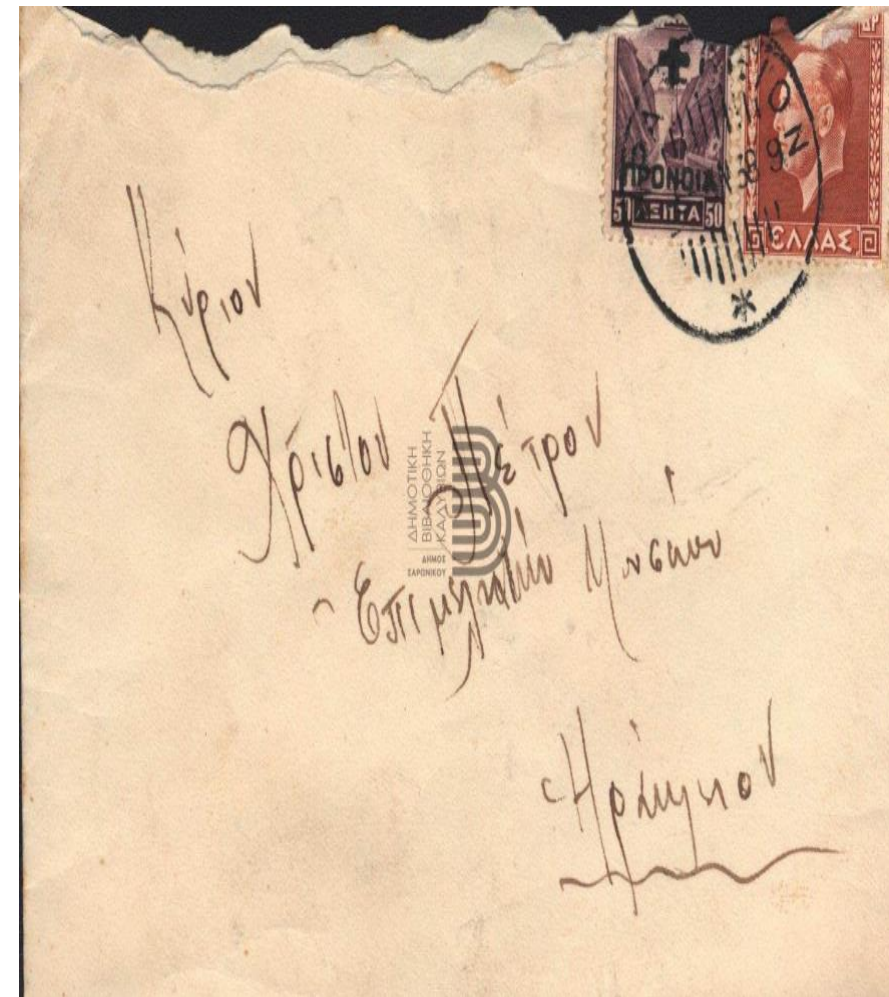 ΔΡ
ΠΡΟΝΟΙΑ
50 ΛΕΠΤΑ 50
ΕΛΛΑΣ
Κύριον
Χρίστον Πέτρον
Επιμελητήν Μουσείου
Ηράκλειον
ΔΗΜΟΤΙΚΗ
ΒΙΒΛΙΟΘΗΚΗ
ΚΑΛΥΒΙΩΝ
ΔΗΜΟΣ
ΣΑΡΩΝΙΚΟΥ